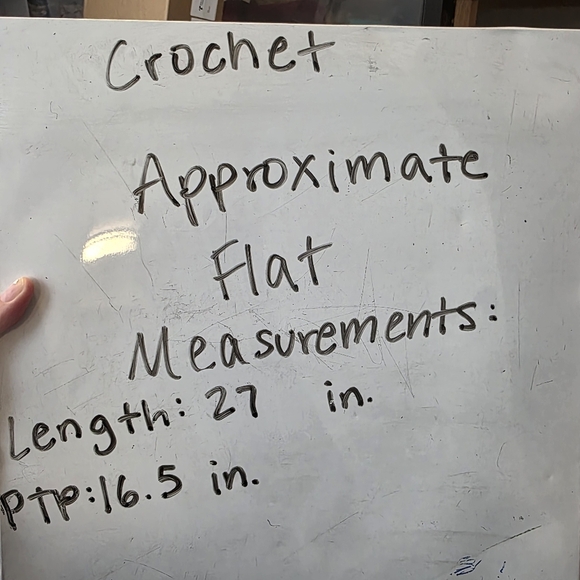 Crochet
Approximate
Flat
Measurements:
Length: 27 in.
PTP: 16.5 in.